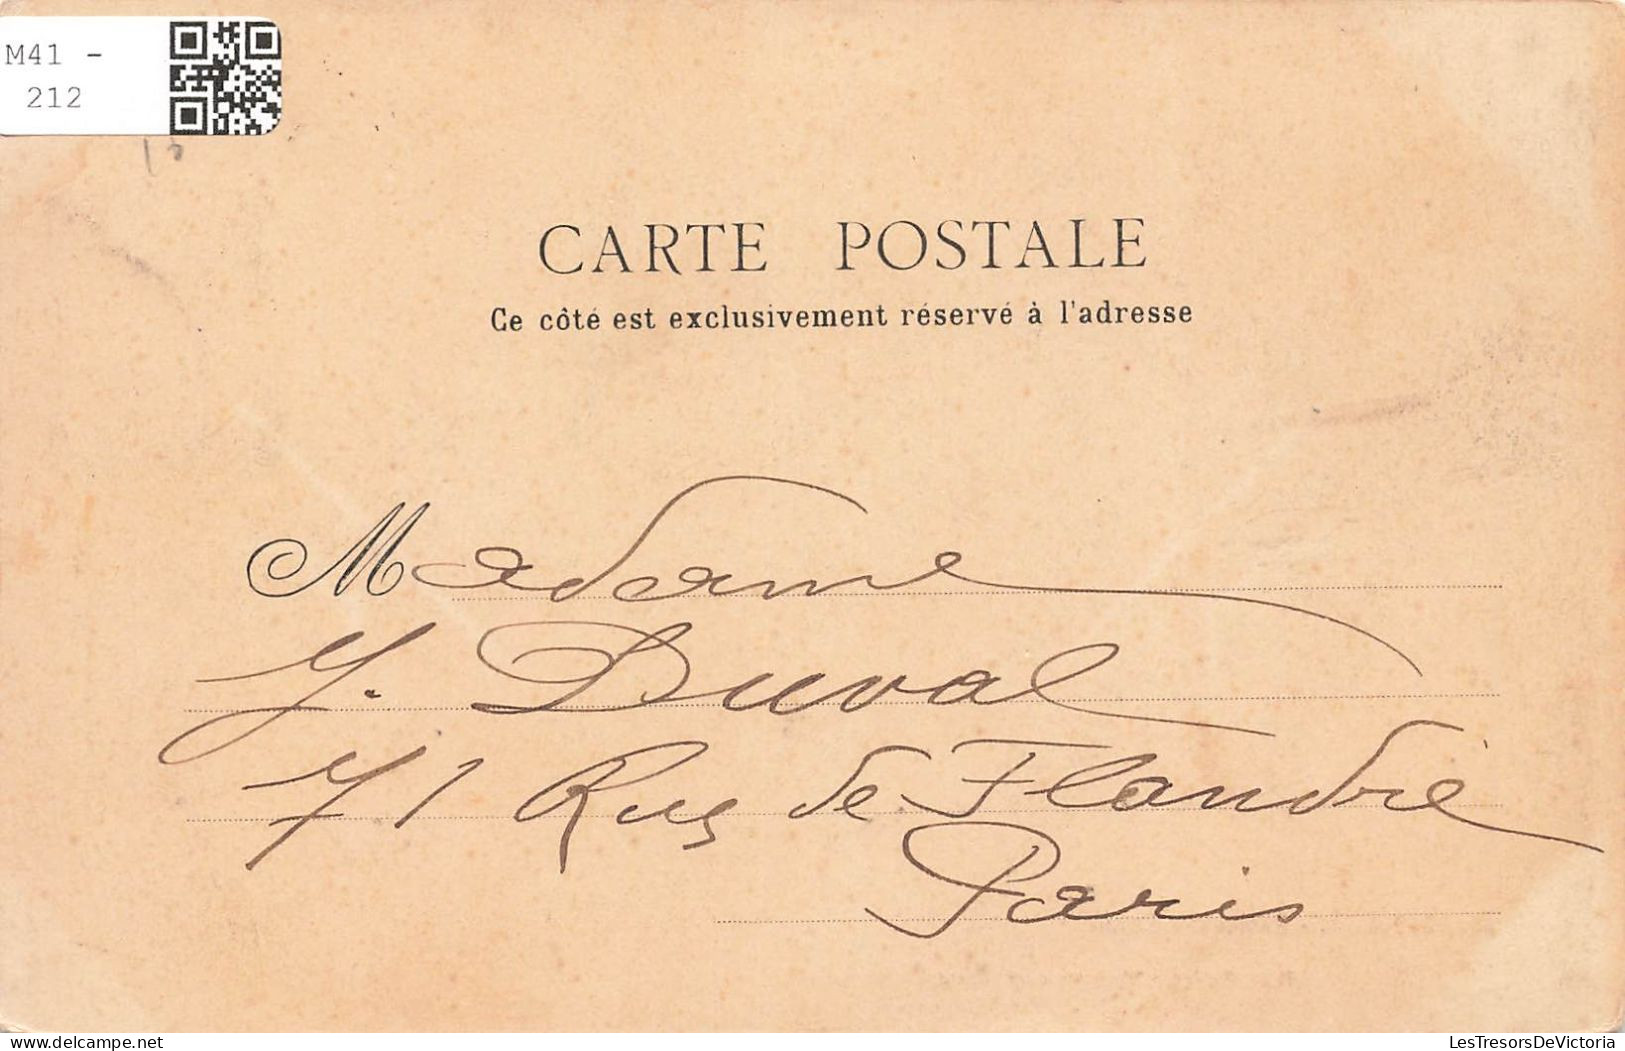 M41 -
212
CARTE POSTALE
Ce côté est exclusivement réservé à l'adresse
Madame
J. Duval
71 Rue de Flandre
Paris
www.delcampe.net
LesTresorsDeVictoria